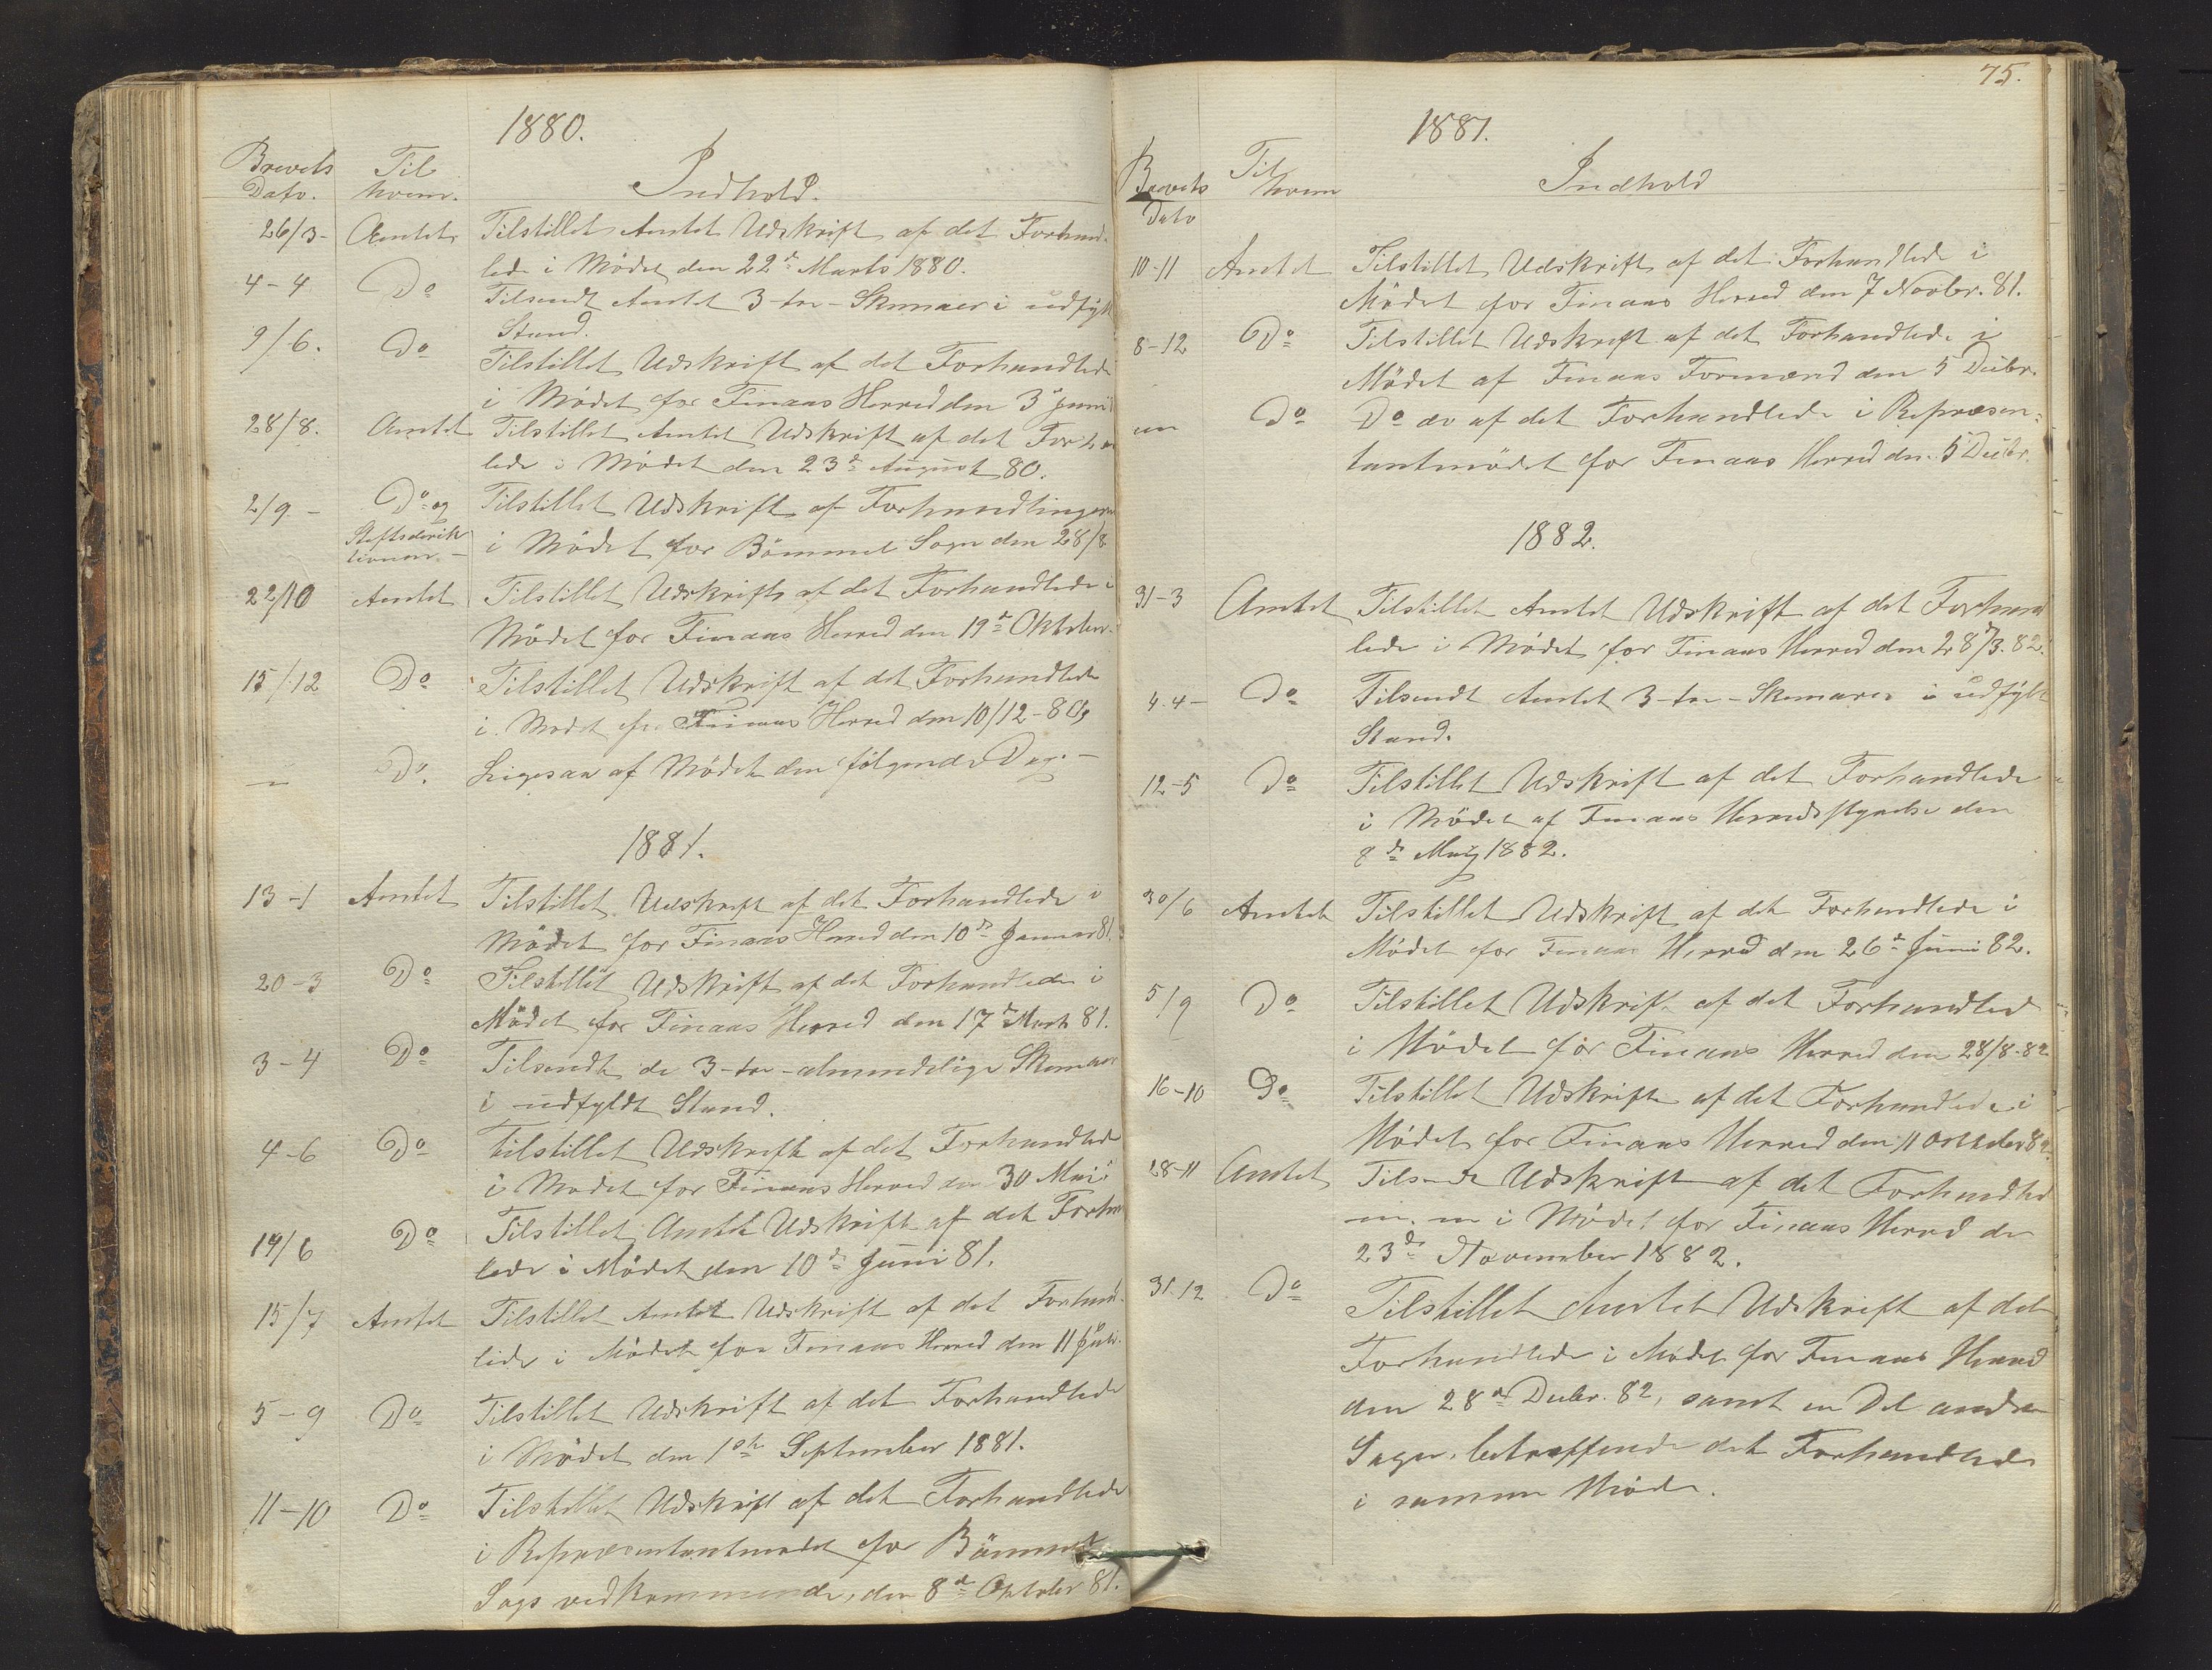 1880.
Brevets Til
Dato. hvem. Indhold.
26/3- Amtet Tilstillet Amtet Udskrift af det Forhand-
lede i Mödet den 22de Marts 1880.
4-4 Do Tilsendt Amtet 3-tre-Skemaer i udfylt
Stand.
9/6. Do Tilstillet Udskrift af det Forhandlede
i Mödet for Finaas Herred den 3die Juni
28/8. Amtet Tilstillet Amtet Udskrift af det Forhan
lede i Mödet den 23de August 80.
2/9 - Do og Tilstillet Udskrift af Forhandlingerne
Stiftsdirek
tionen. - i Mödet for Bömmel Sogn den 28/8
22/10 Amtet Tilstillet Udskrift af det Forhandlede i
Mödet for Finaas Herred den 19de Oktober.
15/12 Do Tilstillet Udskrift af det Forhandlede
i Mödet for Finaas Herred den 10/12-80,
— Do. Ligesaa af Mödet den fölgende Dag. -
1881.
13-1 Amtet Tilstillet Udskrift af det Forhandlede i
Mödet for Finaas Herred den 10de Januar 81.
20-3 Do Tilstillet Udskrift af det Forhandlede i
Mödet for Finaas Herred den 17de Marts 81.
3-4 Do Tilsendt de 3-tre-almindelige Skemaer
i udfyldt Stand.
4-6 Do Tilstillet Udskrift af det Forhandlede
i Mödet for Finaas Herred den 30 Mai
14/6 Do Tilstillet Amtet Udskrift af det Forhan
lede i Mödet den 10de Juni 81.
15/7 Amtet Tilstillet Amtet Udskrift af det Forhand-
lede i Mödet for Finaas Herred den 11 Juli.
5-9 Do Tilstillet Udskrift af det Forhandlede
i Mödet den 1ste September 1881.
11-10 Do Tilstillet Udskrift af det Forhandlede
i Repræsentantmödet for Bömmel
Sogn vedkommende, den 8de Oktober 81.
75.
1881.
Brevets Til
Dato hvem Indhold
10-11 Amtet Tilstillet Udskrift af det Forhandlede i
Mödet for Finaas Herred den 7 Novbr. 81.
8-12 Do Tilstillet Udskrift af det Forhandlede i
Mödet af Finaas Formænd den 5 Decbr.
Do Do av af det Forhandlede i Repræsen-
tantmödet for Finaas Herred den 5 Decbr.
1882.
31-3 Amtet Tilstillet Amtet Udskrift af det Forhand
lede i Mödet for Finaas Herred den 28/3.82.
4.4- Do Tilsendt Amtet 3-tre-Skemaer i udfylt
Stand.
12-5 Do Tilstillet Udskrift af det Forhandlede
i Mödet af Finaas Herredsstyrelse den
8de Maij 1882.
30/6 Amtet Tilstillet Udskrift af det Forhandlede i
Mödet for Finaas Herred den 26de Juni 82.
5/9 Do Tilstillet Udskrift af det Forhandled
i Mödet for Finaas Herred den 28/8-82
16-10 Do Tilstillet Udskrift af det Forhandlede i
Mödet for Finaas Herred den 11 Oktober 82.
28-11 Amtet Tilsendt Udskrift af det Forhandled
m.m i Mödet for Finaas Herred den
23de November 1882.
31.12 Do Tilstillet Amtet Udskrift af det
Forhandlede i Mödet for Finaas Herred
den 28de Decbr. 82, samt en Del andre
Sager, betræffende det Forhandlede
i samme Möde.